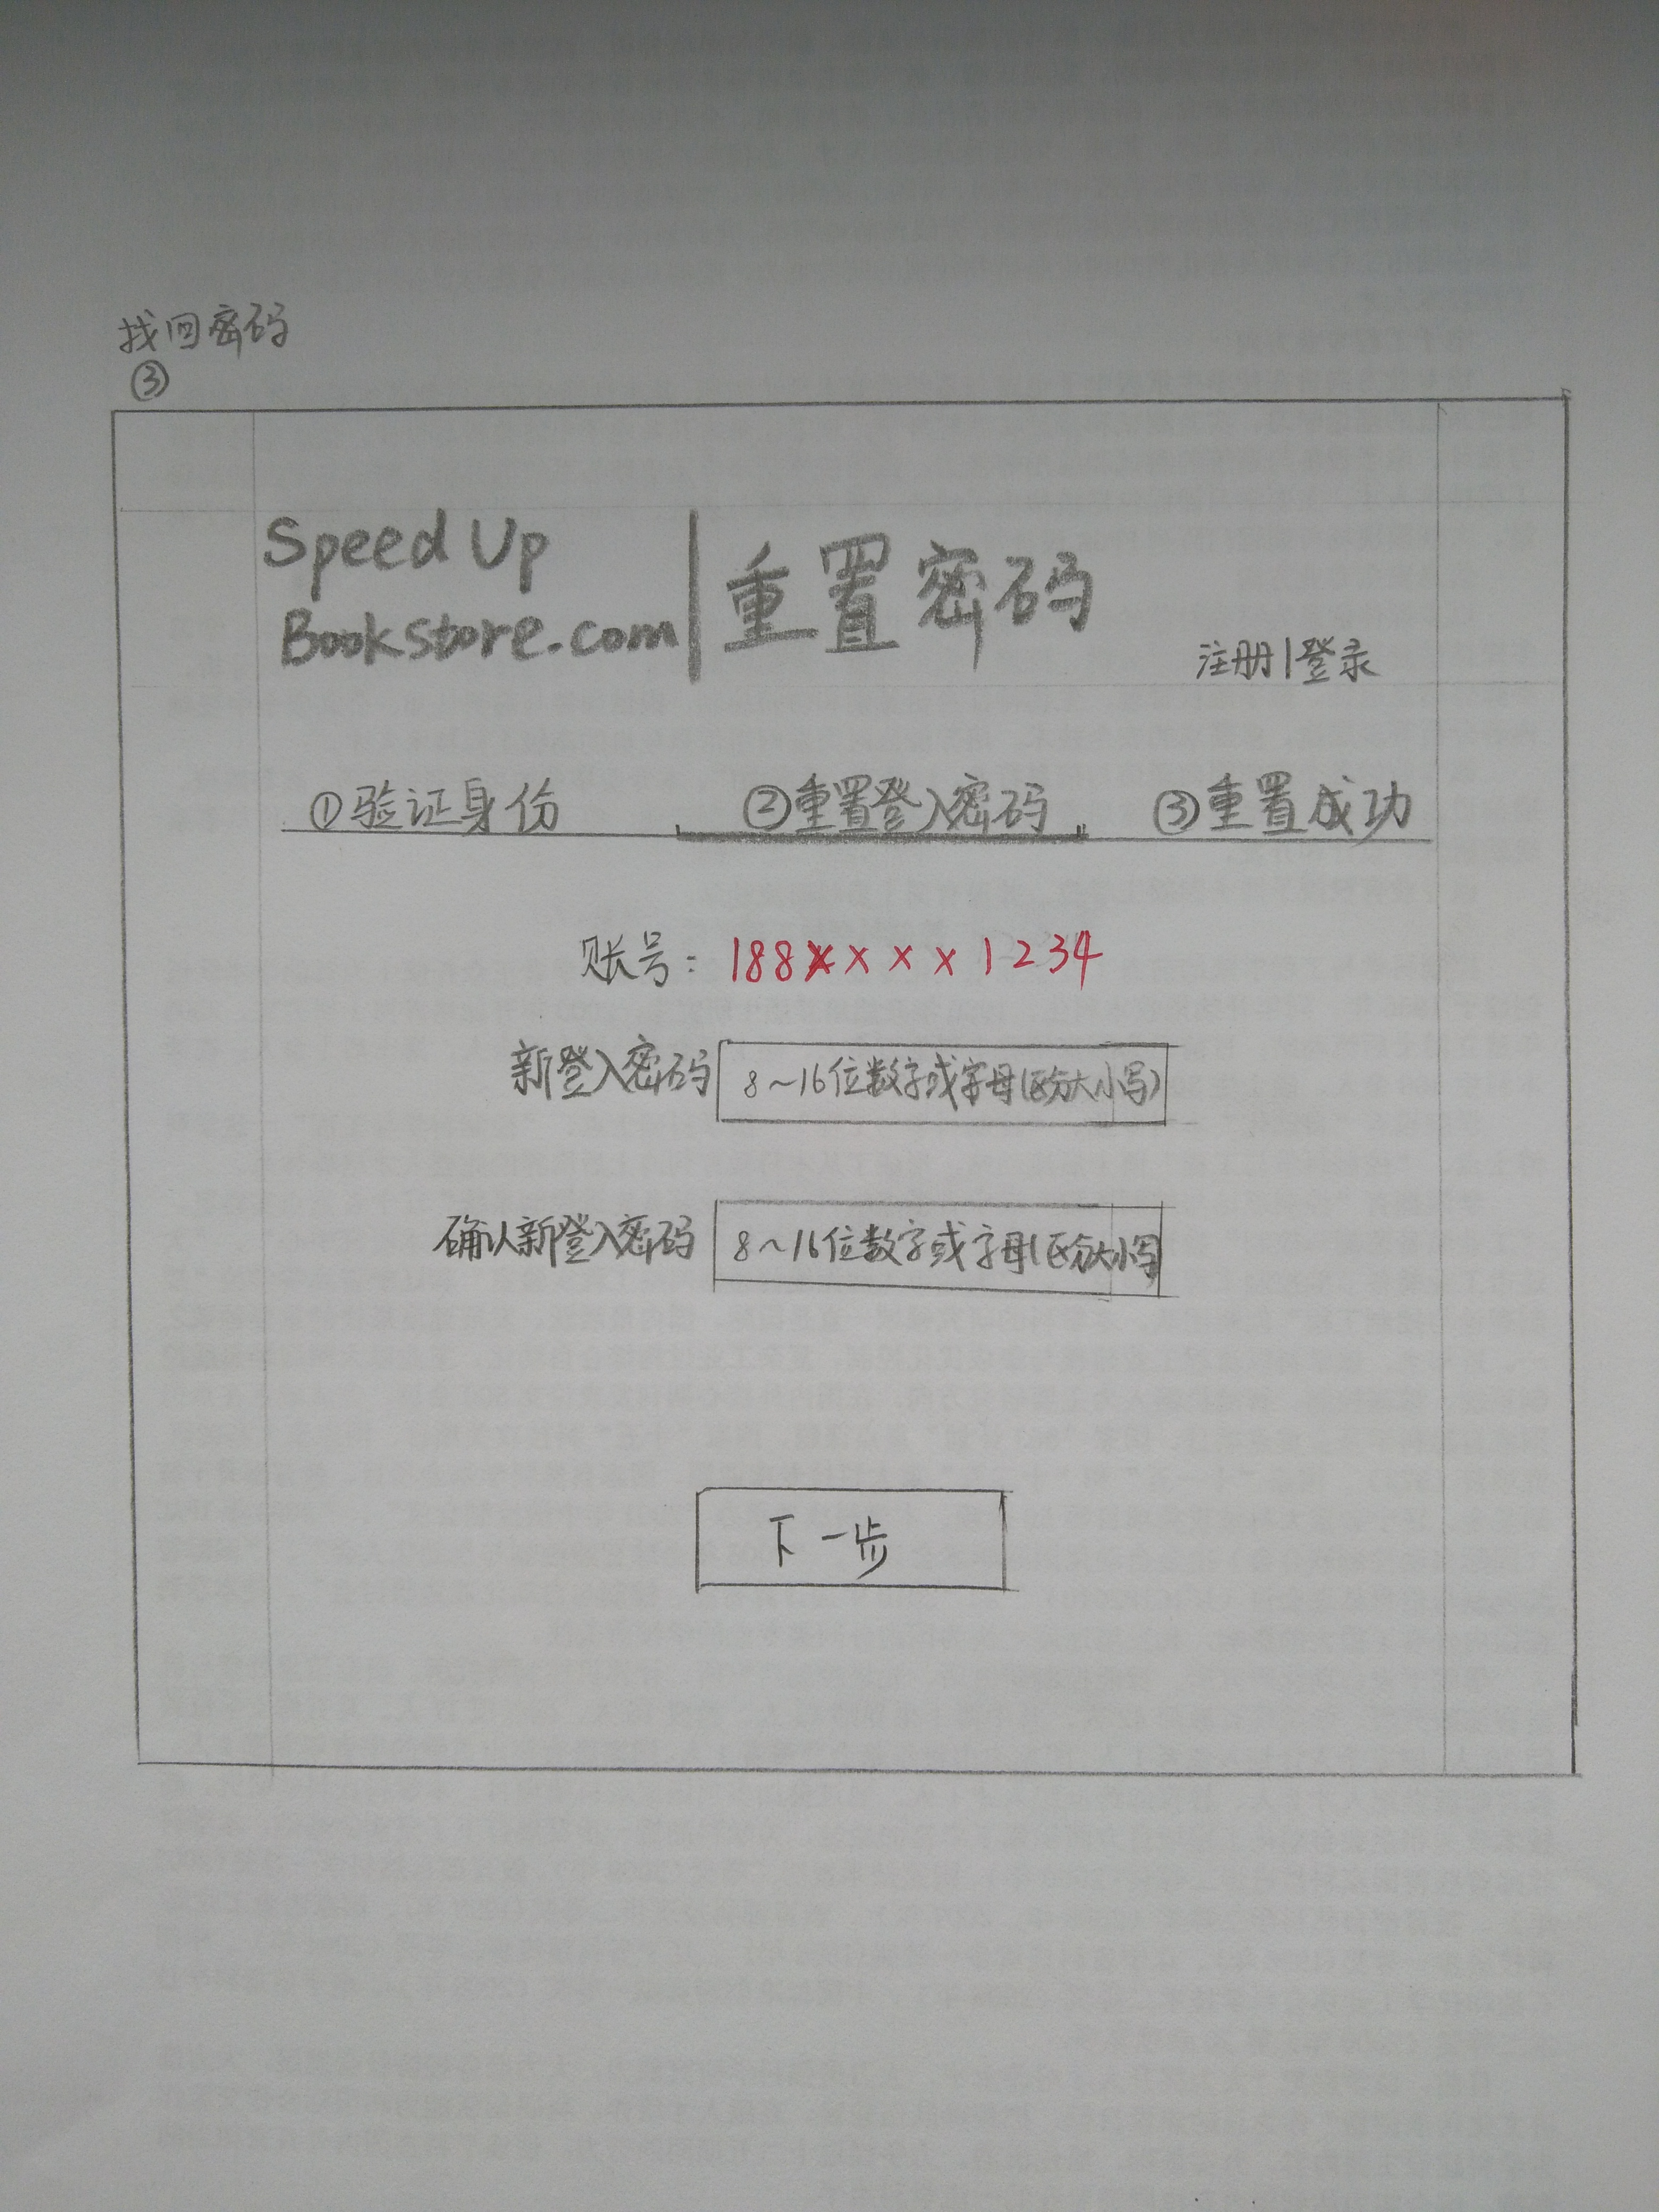 找回密码
③
Speed Up
Bookstore.com | 重置密码
注册 | 登录
①验证身份 ②重置登入密码 ③重置成功
账号: 188××××1234
新登入密码 8~16位数字或字母(区分大小写)
确认新登入密码 8~16位数字或字母(区分大小写
下一步